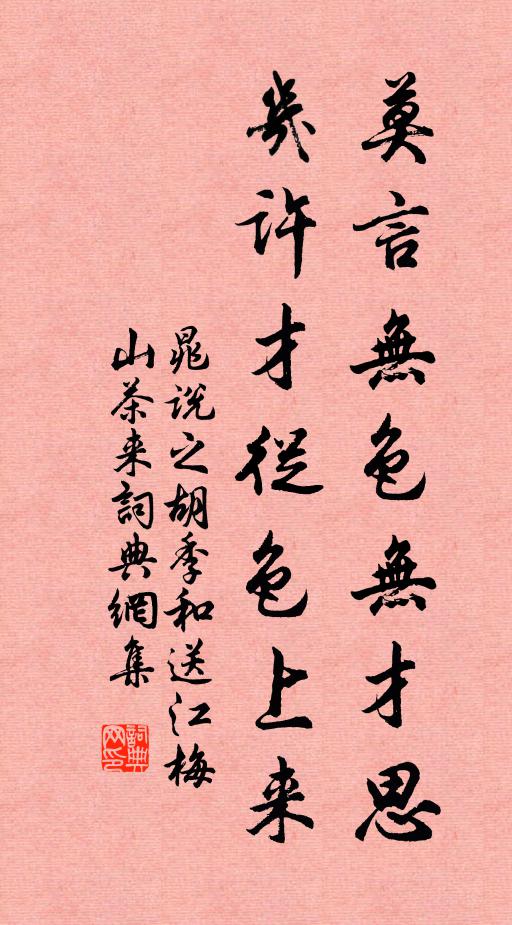 莫言無色無才思
幾許才從色上来
晁説之胡季和送江梅
山茶来詞典網集
詞典
网印